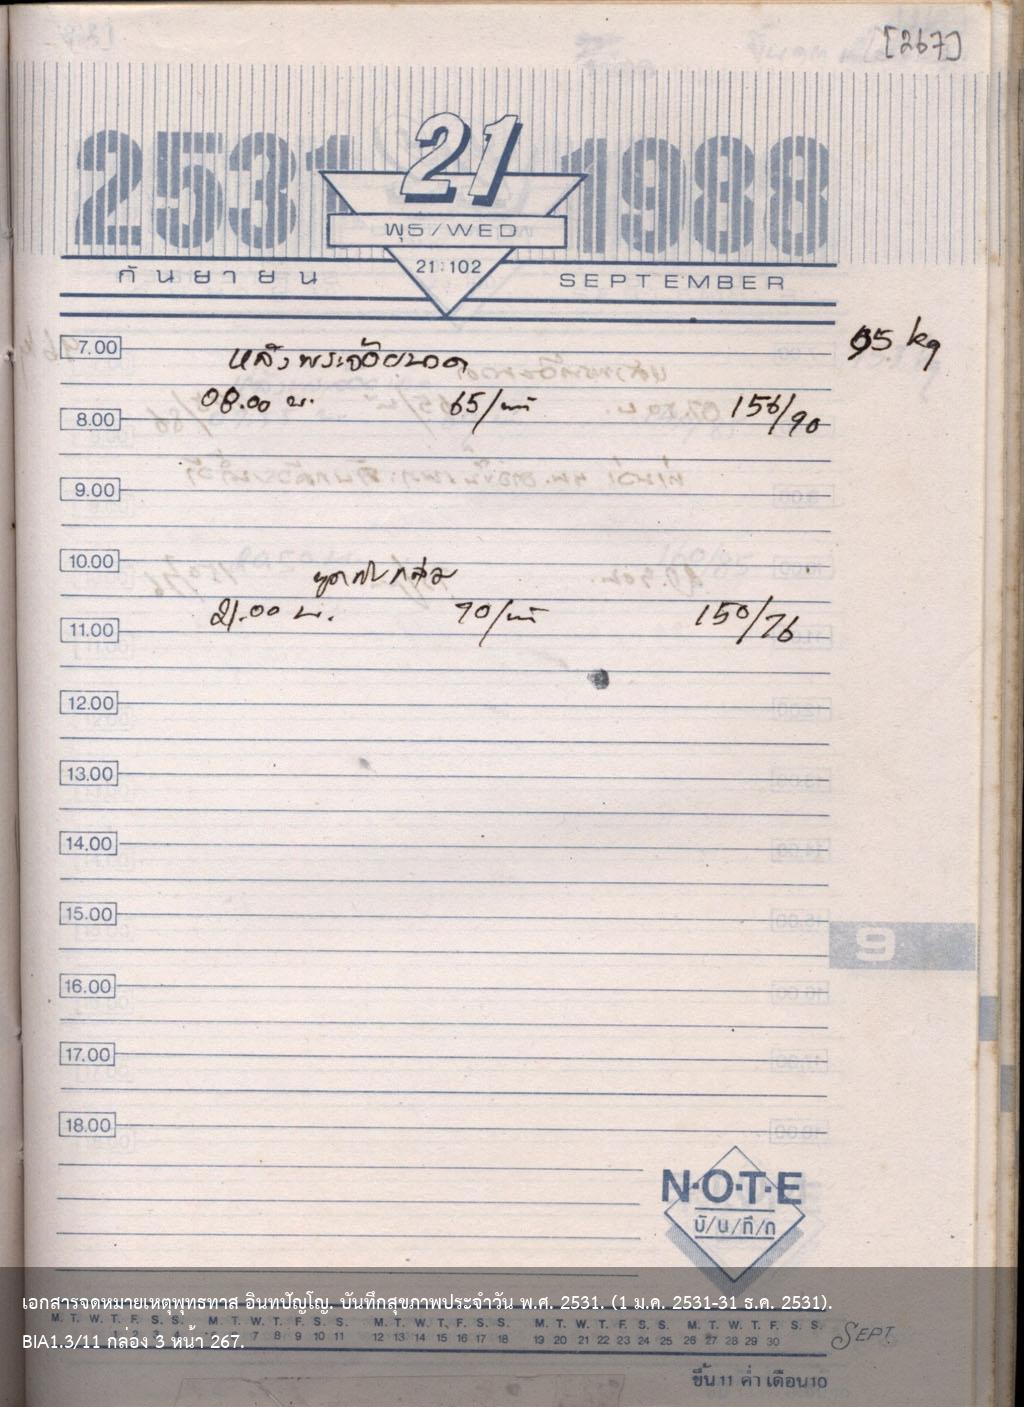 [267]
2531 21 1988
พุธ/WED
21:102
กันยายน SEPTEMBER
7.00
95 kg
08.00 น. 65/นาที 156/90
8.00
9.00
10.00
21.00 น. 70/นาที 150/76
11.00
12.00
13.00
14.00
15.00
9
16.00
17.00
18.00
N·O·T·E
บั/น/ทึ/ก
เอกสารจดหมายเหตุพุทธทาส อินทปัญโญ. บันทึกสุขภาพประจำวัน พ.ศ. 2531. (1 ม.ค. 2531-31 ธ.ค. 2531).
M. T. W. T. F. S. S. M. T. W. T. F. S. S. M. T. W. T. F. S. S. M. T. W. T. F. S. S. M. T. W. T. F. S. S.
7 8 9 10 11 12 13 14 15 16 17 18 19 20 21 22 23 24 25 26 27 28 29 30 SEPT.
BIA1.3/11 กล่อง 3 หน้า 267.
ขึ้น 11 ค่ำ เดือน 10